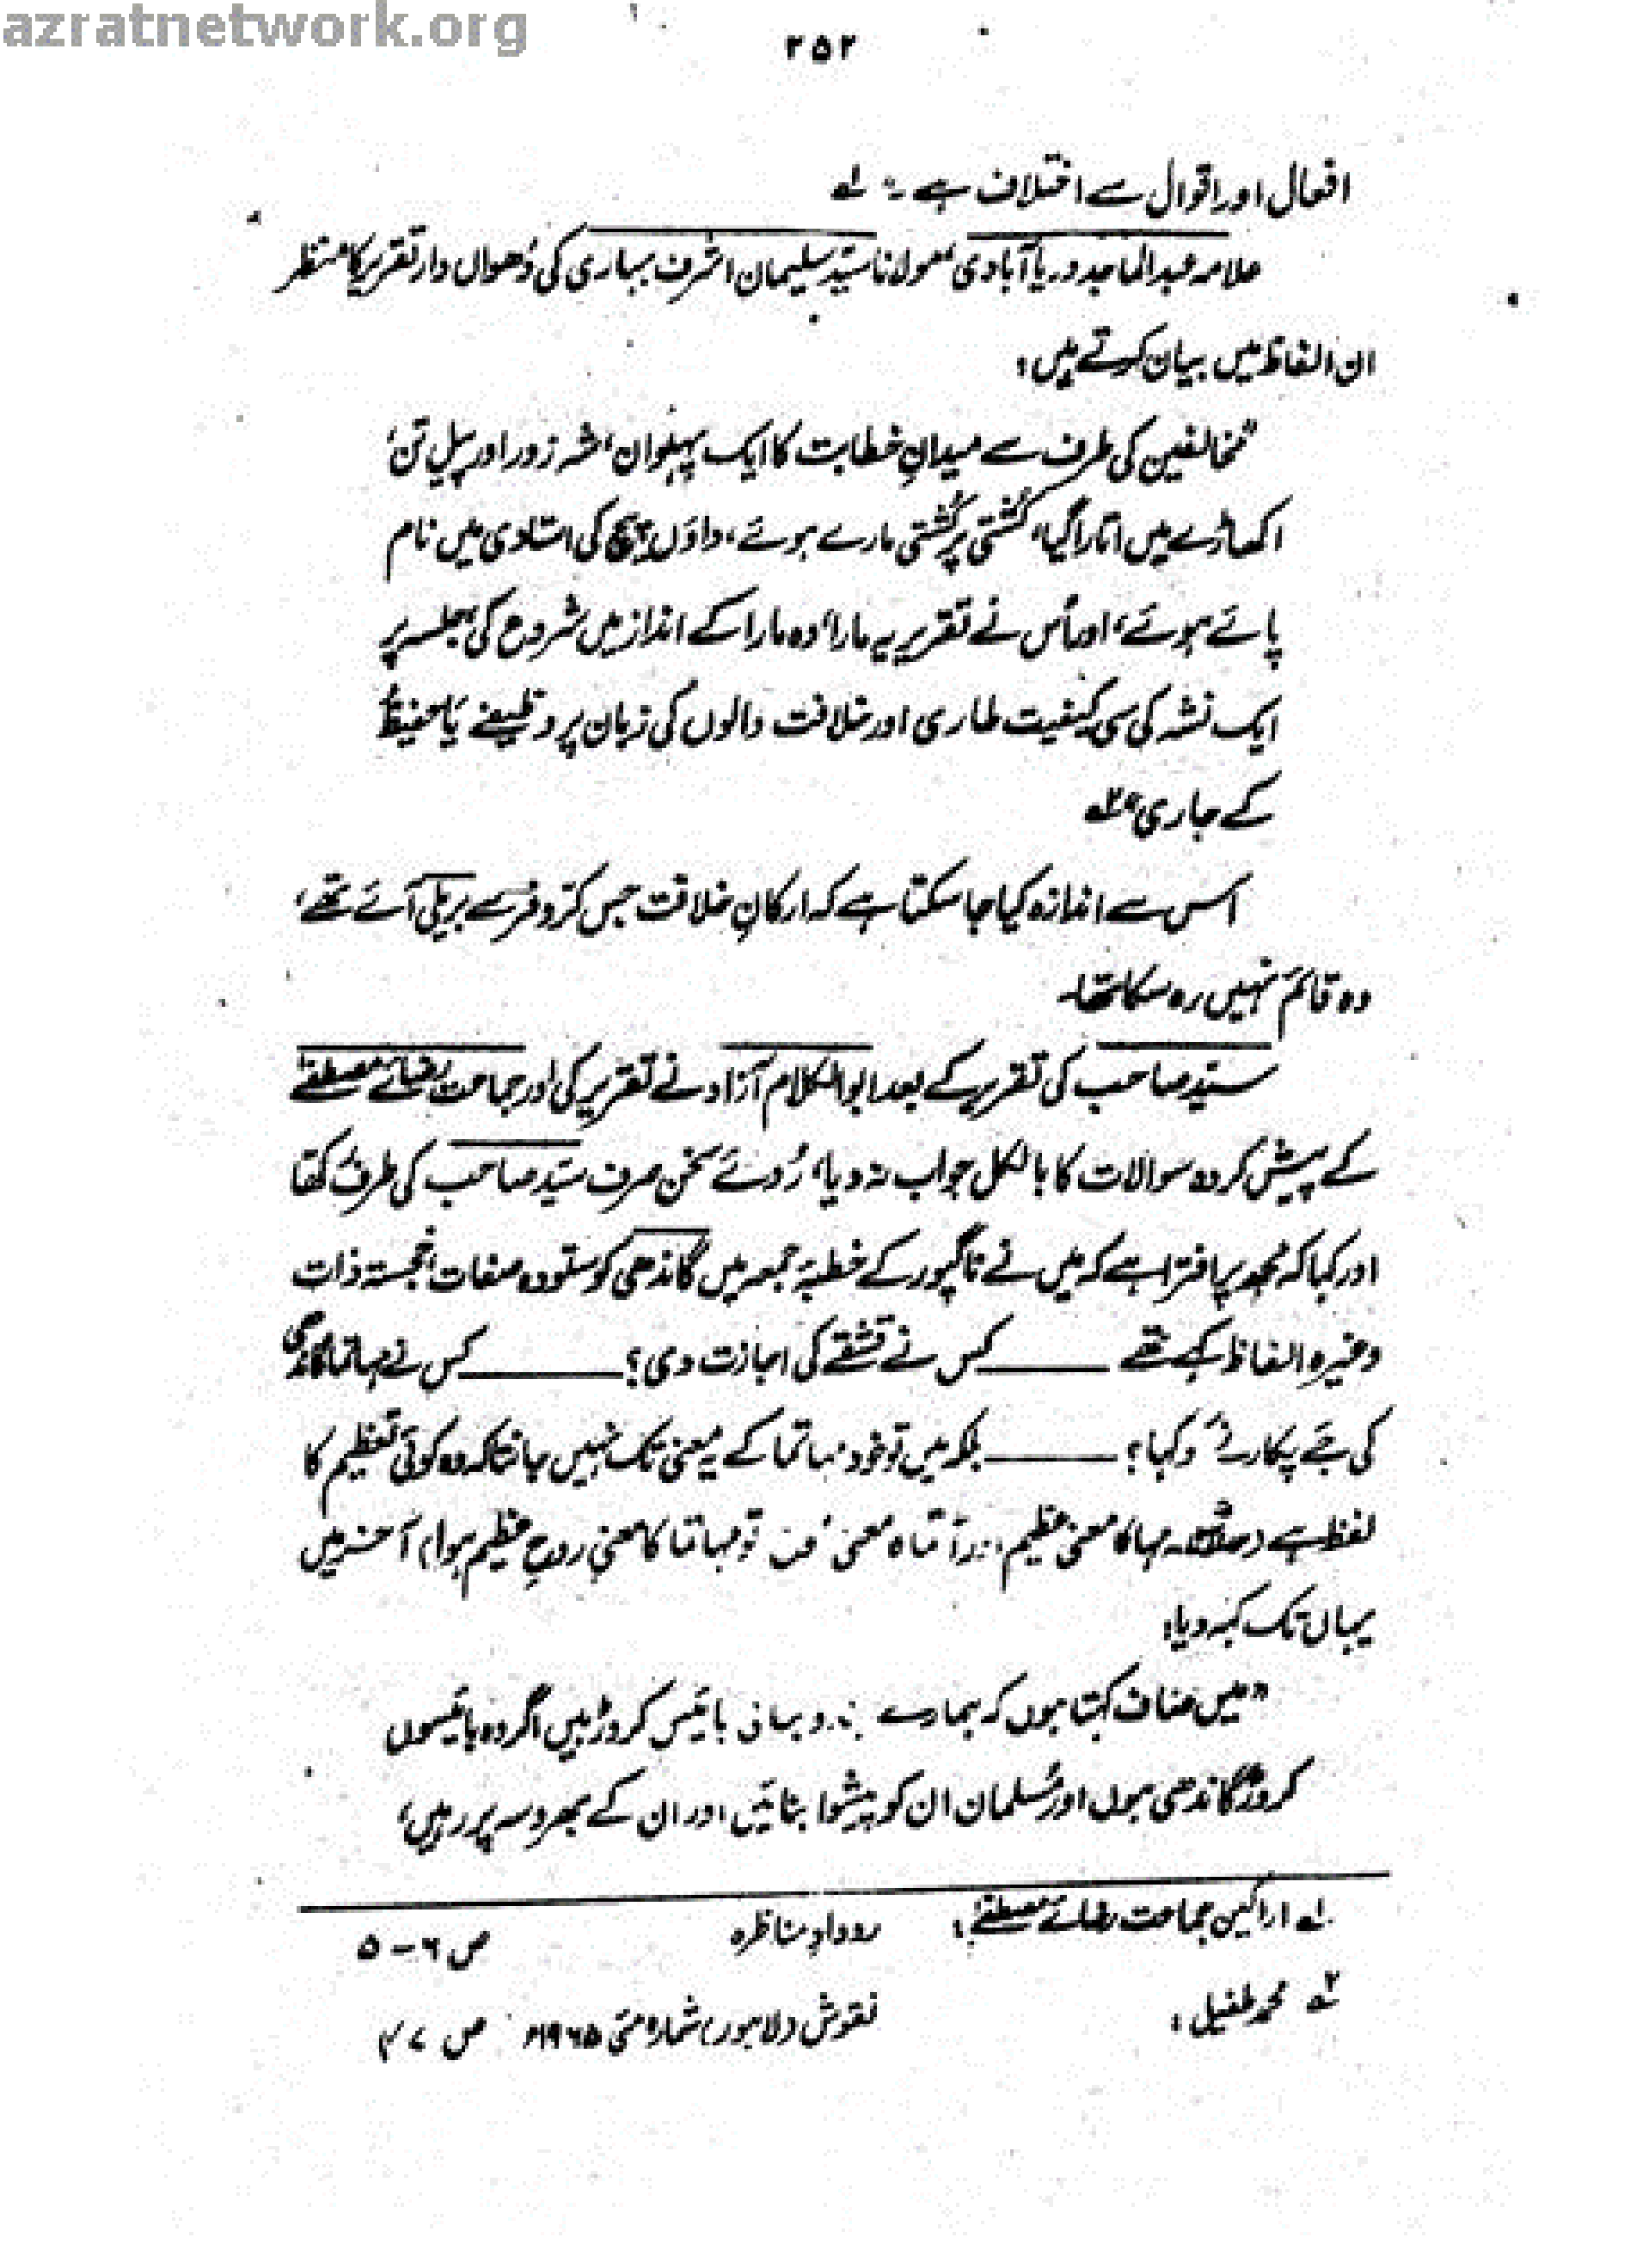 azratnetwork.org
۲۵۲
افعال اور اقوال سے اختلاف ہے ۔" لہ
علامہ عبدالماجد دریا آبادی، مولانا سید سلیمان اشرف بہاری کی دھواں دار تقریر کا منظر
ان الفاظ میں بیان کرتے ہیں :
"مخالفین کی طرف سے میدانِ خطابت کا ایک پہلوان، شہ زور اور پیل تن،
اکھاڑے میں اتارا گیا، کُشتی پر کُشتی مارے ہوئے، داؤں پیچ کی استادی میں نام
پائے ہوئے، اور اُس نے تقریر یہ مارا، وہ مارا کے انداز میں شروع کی، جلسہ پر
ایک نشہ کی سی کیفیت طاری اور خلافت والوں کی زبان پر وظیفے یَاحَفِیْظُ
کے جاری" ۲ہ
اس سے اندازہ کیا جا سکتا ہے کہ ارکانِ خلافت جس کرّ و فر سے بریلی آئے تھے،
وہ قائم نہیں رہ سکا تھا۔
سیّد صاحب کی تقریر کے بعد ابوالکلام آزاد نے تقریر کی اور جماعت رضائے مصطفےٰ
کے پیش کردہ سوالات کا بالکل جواب نہ دیا، رُوئے سخن صرف سیّد صاحب کی طرف تھا
اور کہا کہ مجھ پر افترا ہے کہ میں نے ناگپور کے خطبۂ جمعہ میں گاندھی کو ستودہ صفات، خجستہ ذات
وغیرہ الفاظ کہے تھے ــــــ کس نے قشقے کی اجازت دی؟ ــــــ کس نے مہاتما گاندھی
کی جَے پکارنے کو کہا؟ ــــــ بلکہ میں تو خود مہاتما کے یہ معنی تک نہیں جانتا کہ وہ کوئی تعظیم کا
لفظ ہے ( ۔ مہا کا معنی عظیم، آتما معنی تو مہاتما کا معنی روحِ عظیم ہوا) آخر میں
یہاں تک کہہ دیا :
"میں صاف کہتا ہوں کہ ہمارے بھائی بائیس کروڑ ہیں اگر وہ بائیسوں
کروڑ گاندھی ہوں اور مُسلمان ان کو پیشوا بنائیں اور ان کے بھروسہ پر رہیں،
لہ اراکین جماعت رضائے مصطفےٰ : رودادِ مناظرہ ص ۶-۵
۲ہ محمد طفیل : نقوش (لاہور) شمارہ مئی ۱۹۶۵ء ص